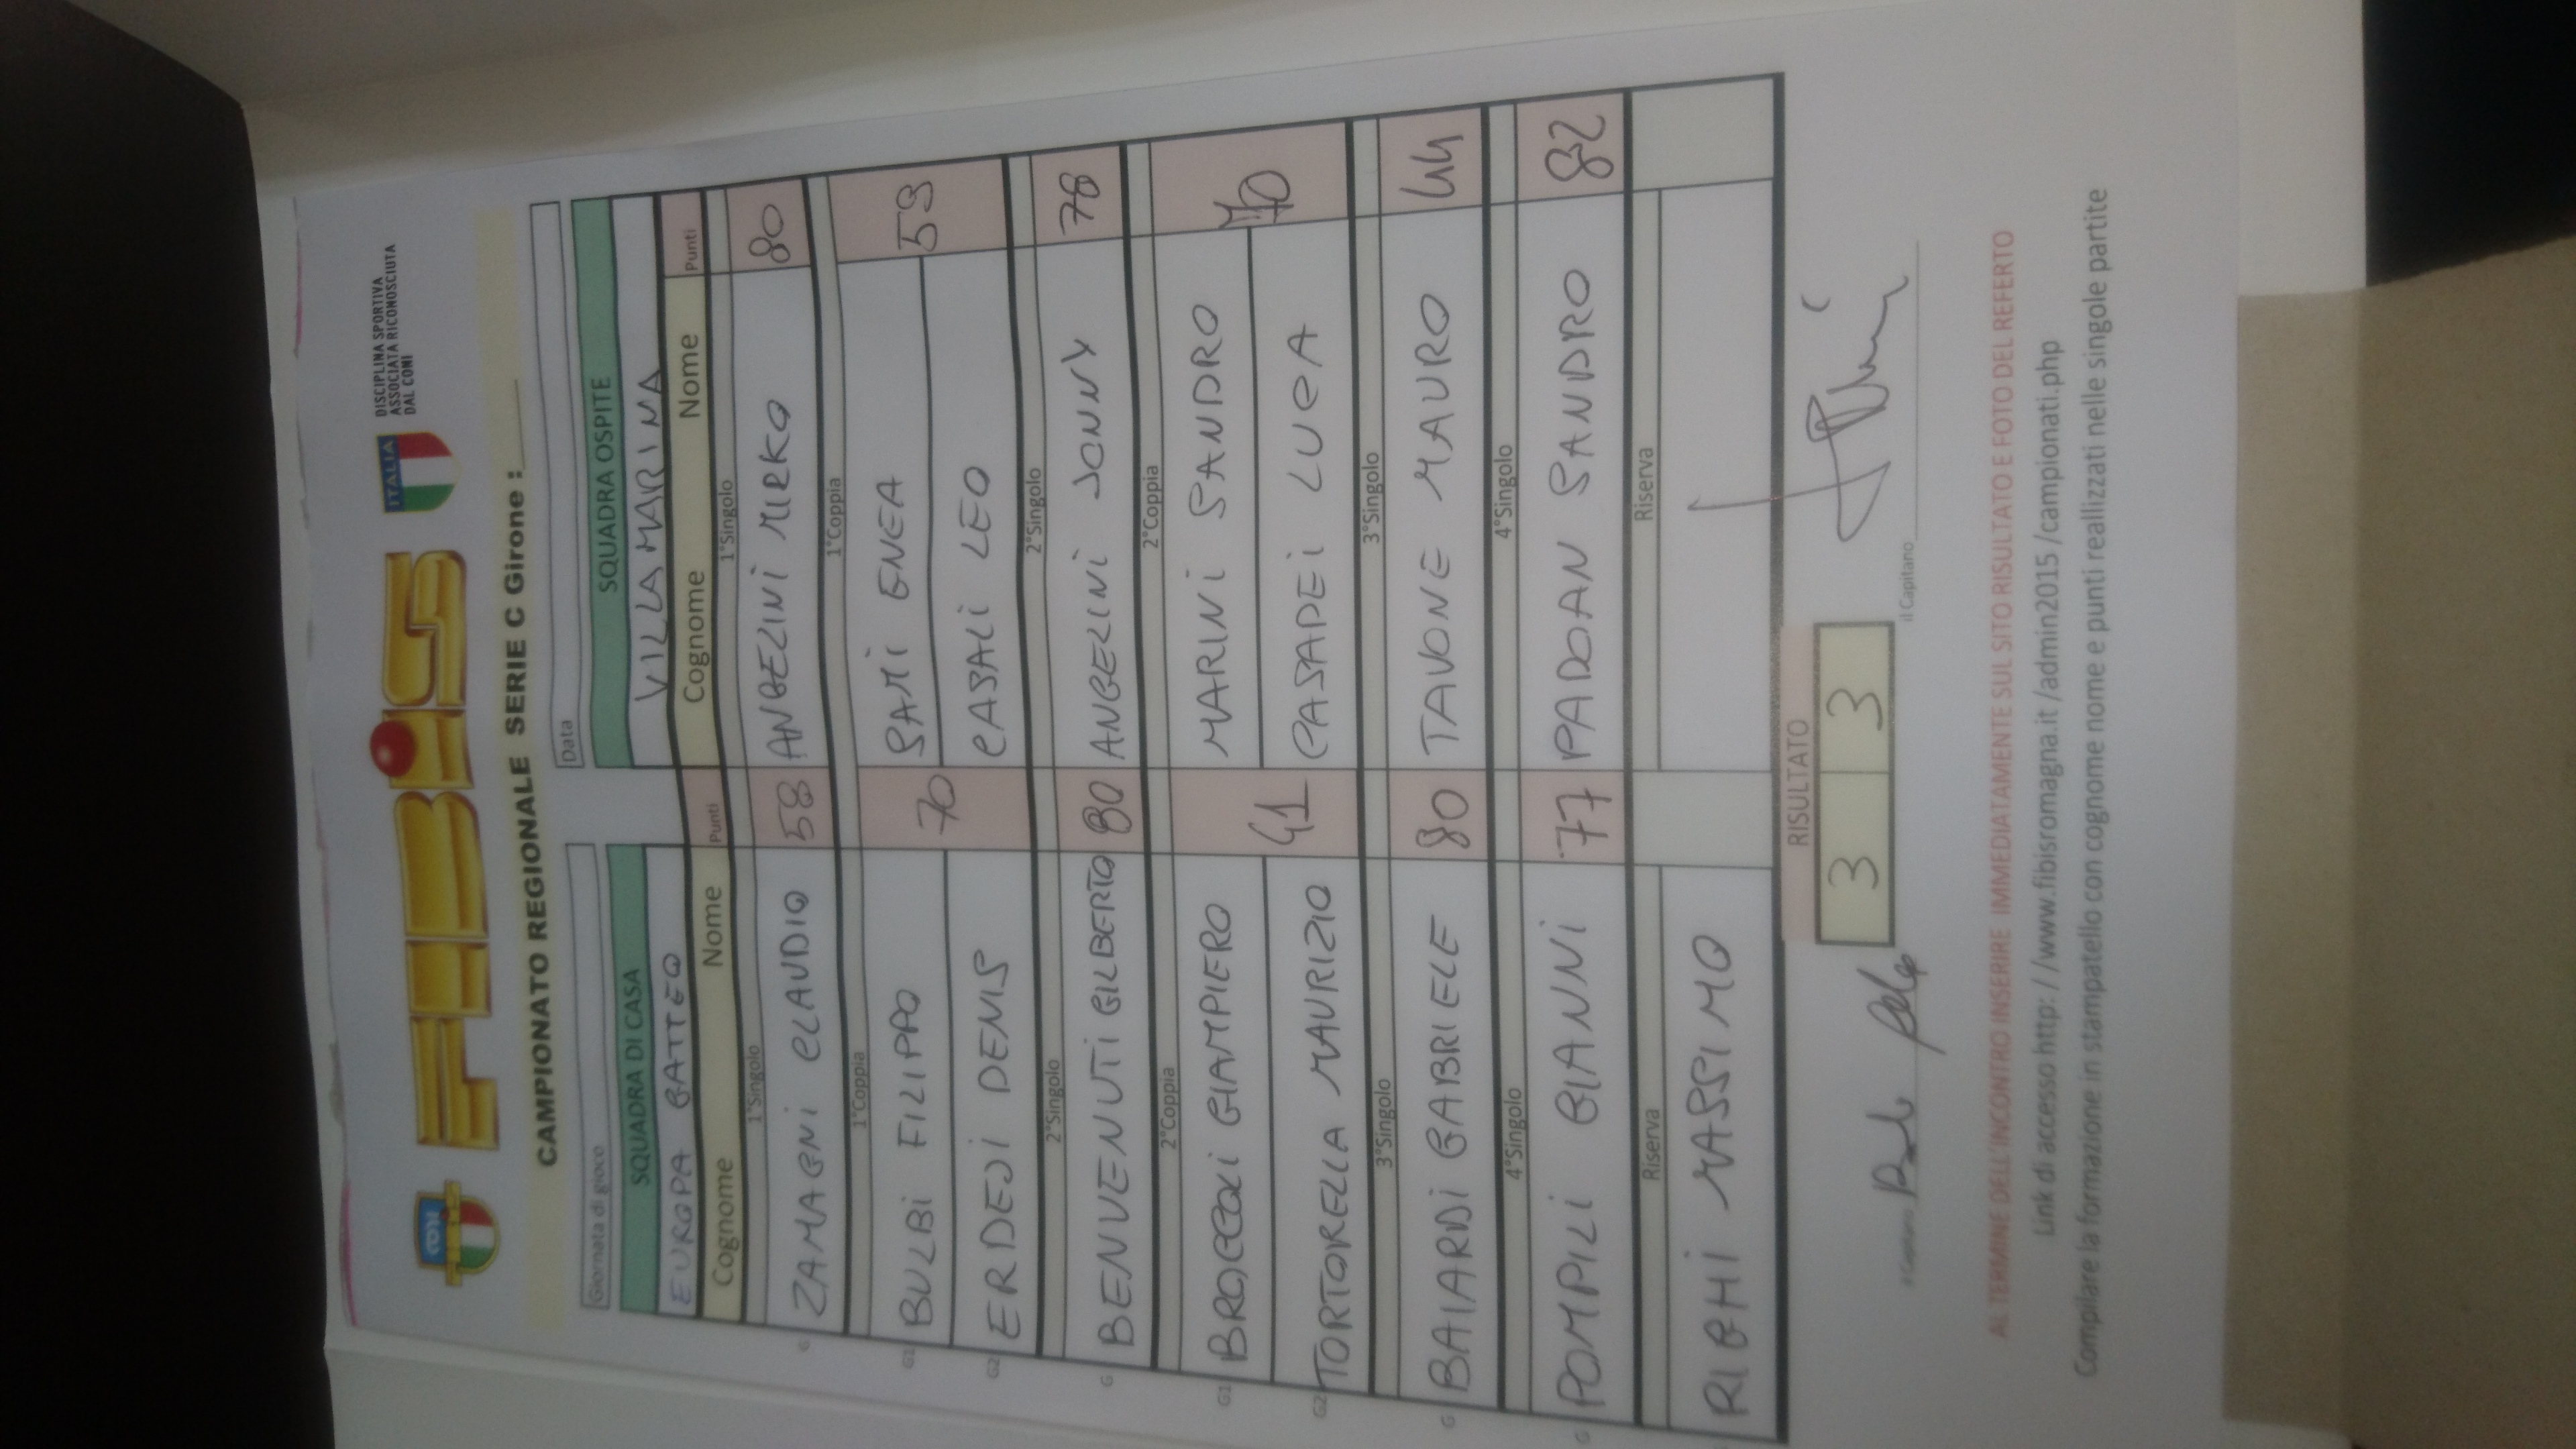 CONI
FIBiS
ITALIA
DISCIPLINA SPORTIVA
ASSOCIATA RICONOSCIUTA
DAL CONI
CAMPIONATO REGIONALE SERIE C Girone :
Giornata di gioco Data
SQUADRA DI CASA SQUADRA OSPITE
EUROPA GATTEO VILLAMARINA
Cognome Nome Punti Cognome Nome Punti
1°Singolo 1°Singolo
G ZAMAGNI CLAUDIO 58 ANGELINI MIRKO 80
1°Coppia 1°Coppia
G1 BULBI FILIPPO 70 SAMI ENEA 59
G2 ERDEJI DENIS CASALI LEO
2°Singolo 2°Singolo
G BENVENUTI GILBERTO 80 ANGELINI JONNY 78
2°Coppia 2°Coppia
G1 BROCCOLI GIAMPIERO 41 MARINI SANDRO 70
G2 TORTORELLA MAURIZIO CASADEI LUCA
3°Singolo 3°Singolo
G BAIARDI GABRIELE 80 TAVONE MAURO 44
4°Singolo 4°Singolo
G POMPILI GIANNI 77 PADOAN SANDRO 82
Riserva Riserva
RIGHI MASSIMO
RISULTATO
3 3
il Capitano il Capitano
AL TERMINE DELL'INCONTRO INSERIRE IMMEDIATAMENTE SUL SITO RISULTATO E FOTO DEL REFERTO
Link di accesso http: / /www.fibisromagna.it /admin2015 /campionati.php
Compilare la formazione in stampatello con cognome nome e punti reallizzati nelle singole partite